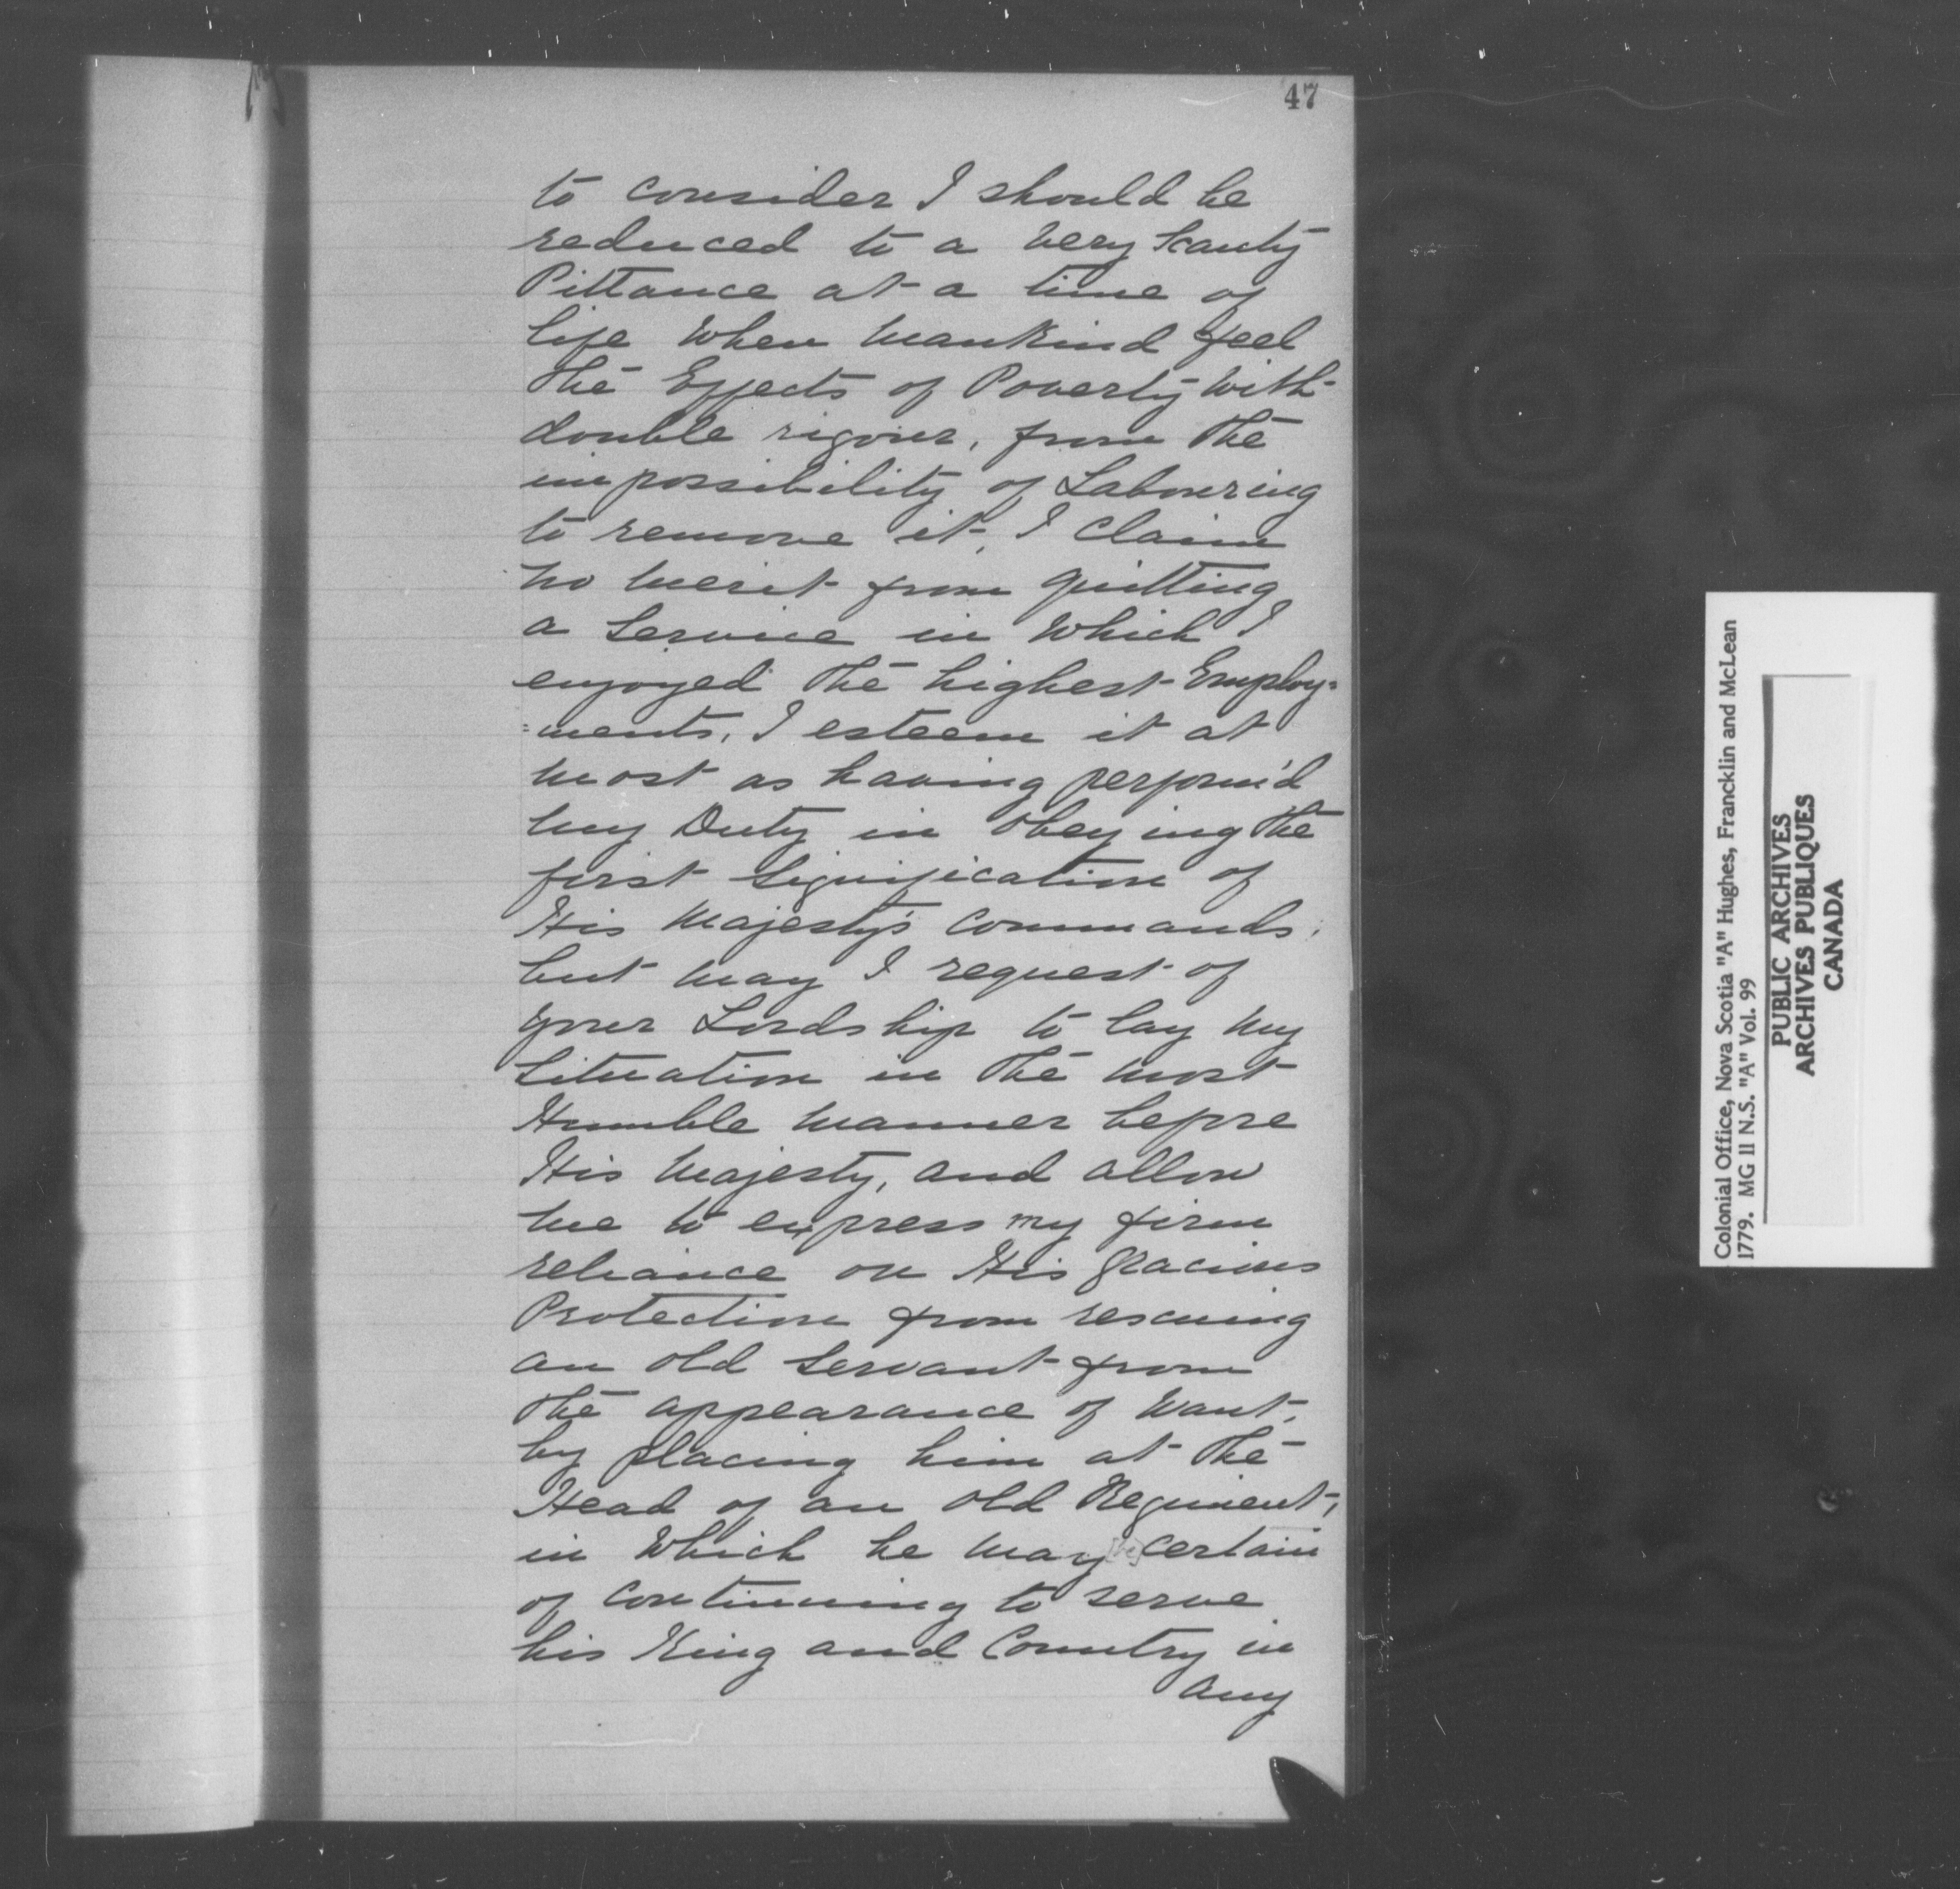 47
to consider I should be
reduced to a very Scanty
Pittance at a time of
life when Mankind feel
the Effects of Poverty with
double rigour, from the
impossibility of Labouring
to remove it, I claim
no Merit from quitting
a Service in which I
enjoyed the highest Employ=
=ments, I esteem it at
most as having perform'd
my Duty in obeying the
first Signification of
His Majesty's Commands;
but may I request of
your Lordship to lay my
Situation in the most
Humble manner before
His Majesty, and allow
me to express my firm
reliance on His Gracious
Protection from rescuing
an old Servant from
the appearance of Want,
by placing him at the
Head of an old Regiment,
in which he may [be] certain
of continuing to serve
his King and Country in
any
Colonial Office, Nova Scotia "A" Hughes, Francklin and McLean
1779. MG 11 N.S. "A" Vol. 99
PUBLIC ARCHIVES
ARCHIVES PUBLIQUES
CANADA